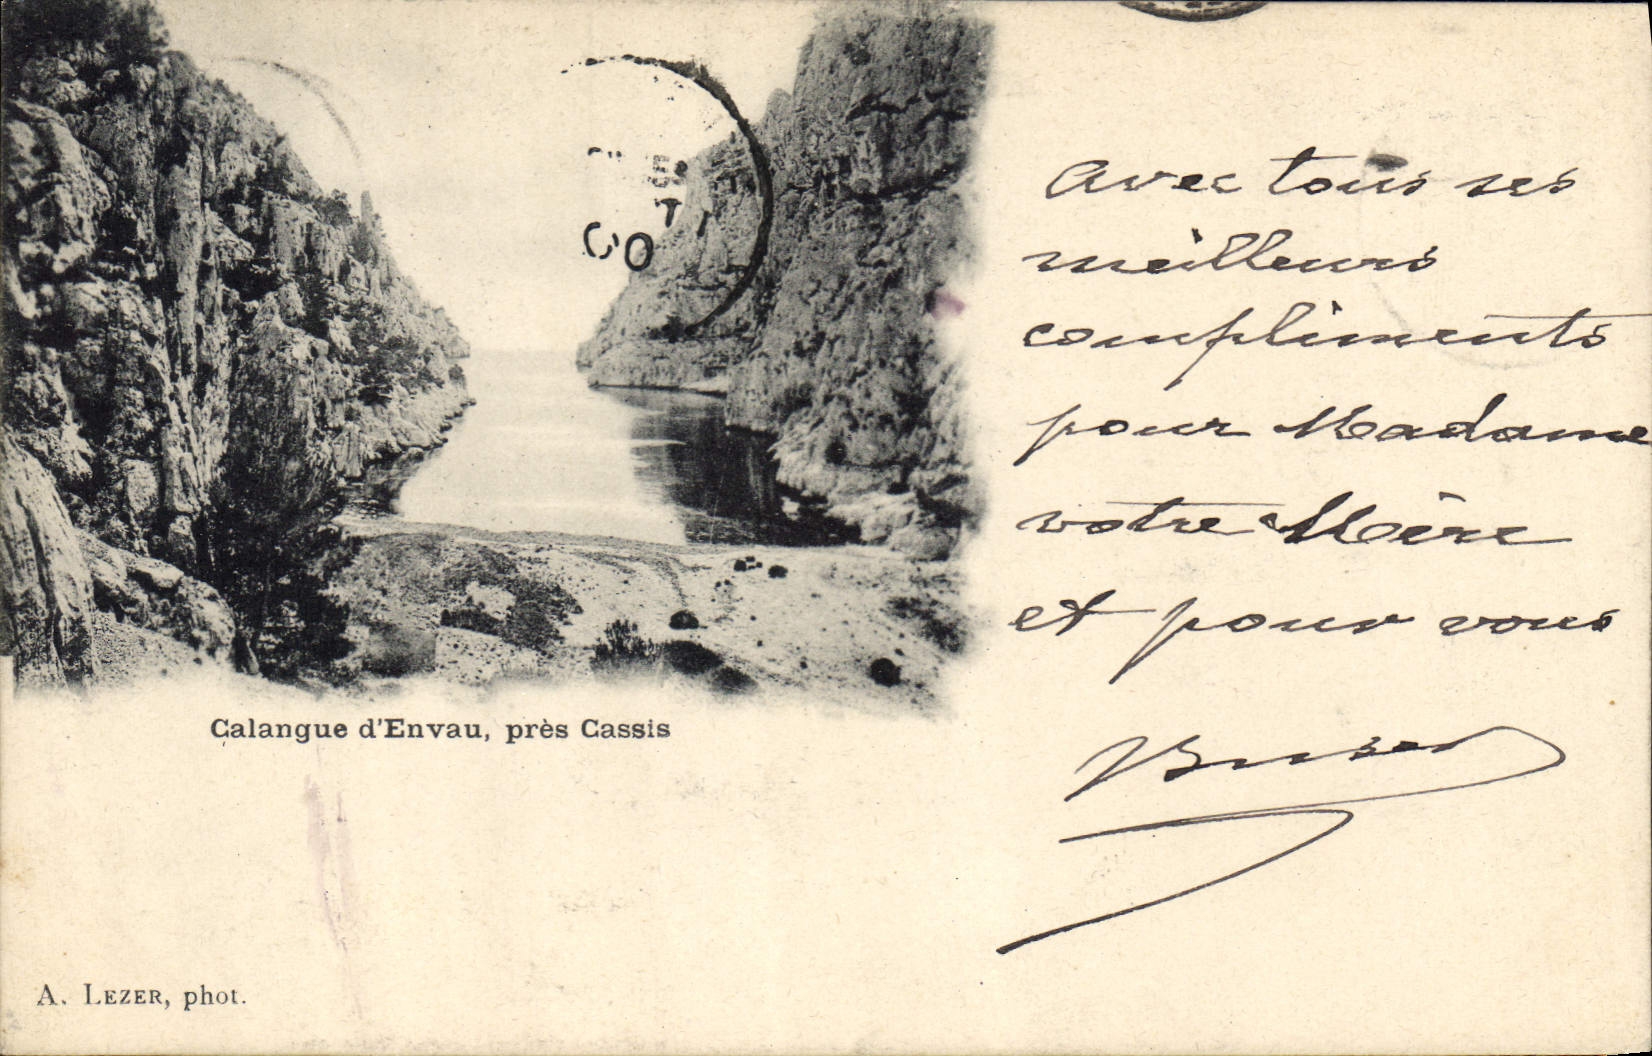 Avec tous ses
meilleurs
compliments
pour Madame
votre Mère
et pour vous
Calangue d'Envau, près Cassis
A. LEZER, phot.